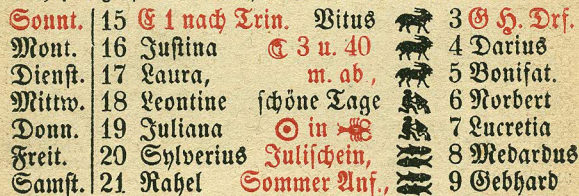 Sonnt. 15 E 1 nach Trin. Vitus 3 G H. Drf.
Mont. 16 Justina ☾ 3 u. 40 4 Darius
Dienst. 17 Laura, m. ab, 5 Bonifat.
Mittw. 18 Leontine schöne Tage 6 Norbert
Donn. 19 Juliana ☉ in ♋ 7 Lucretia
Freit. 20 Sylverius Julischein, 8 Medardus
Samst. 21 Rahel Sommer Anf., 9 Gebhard